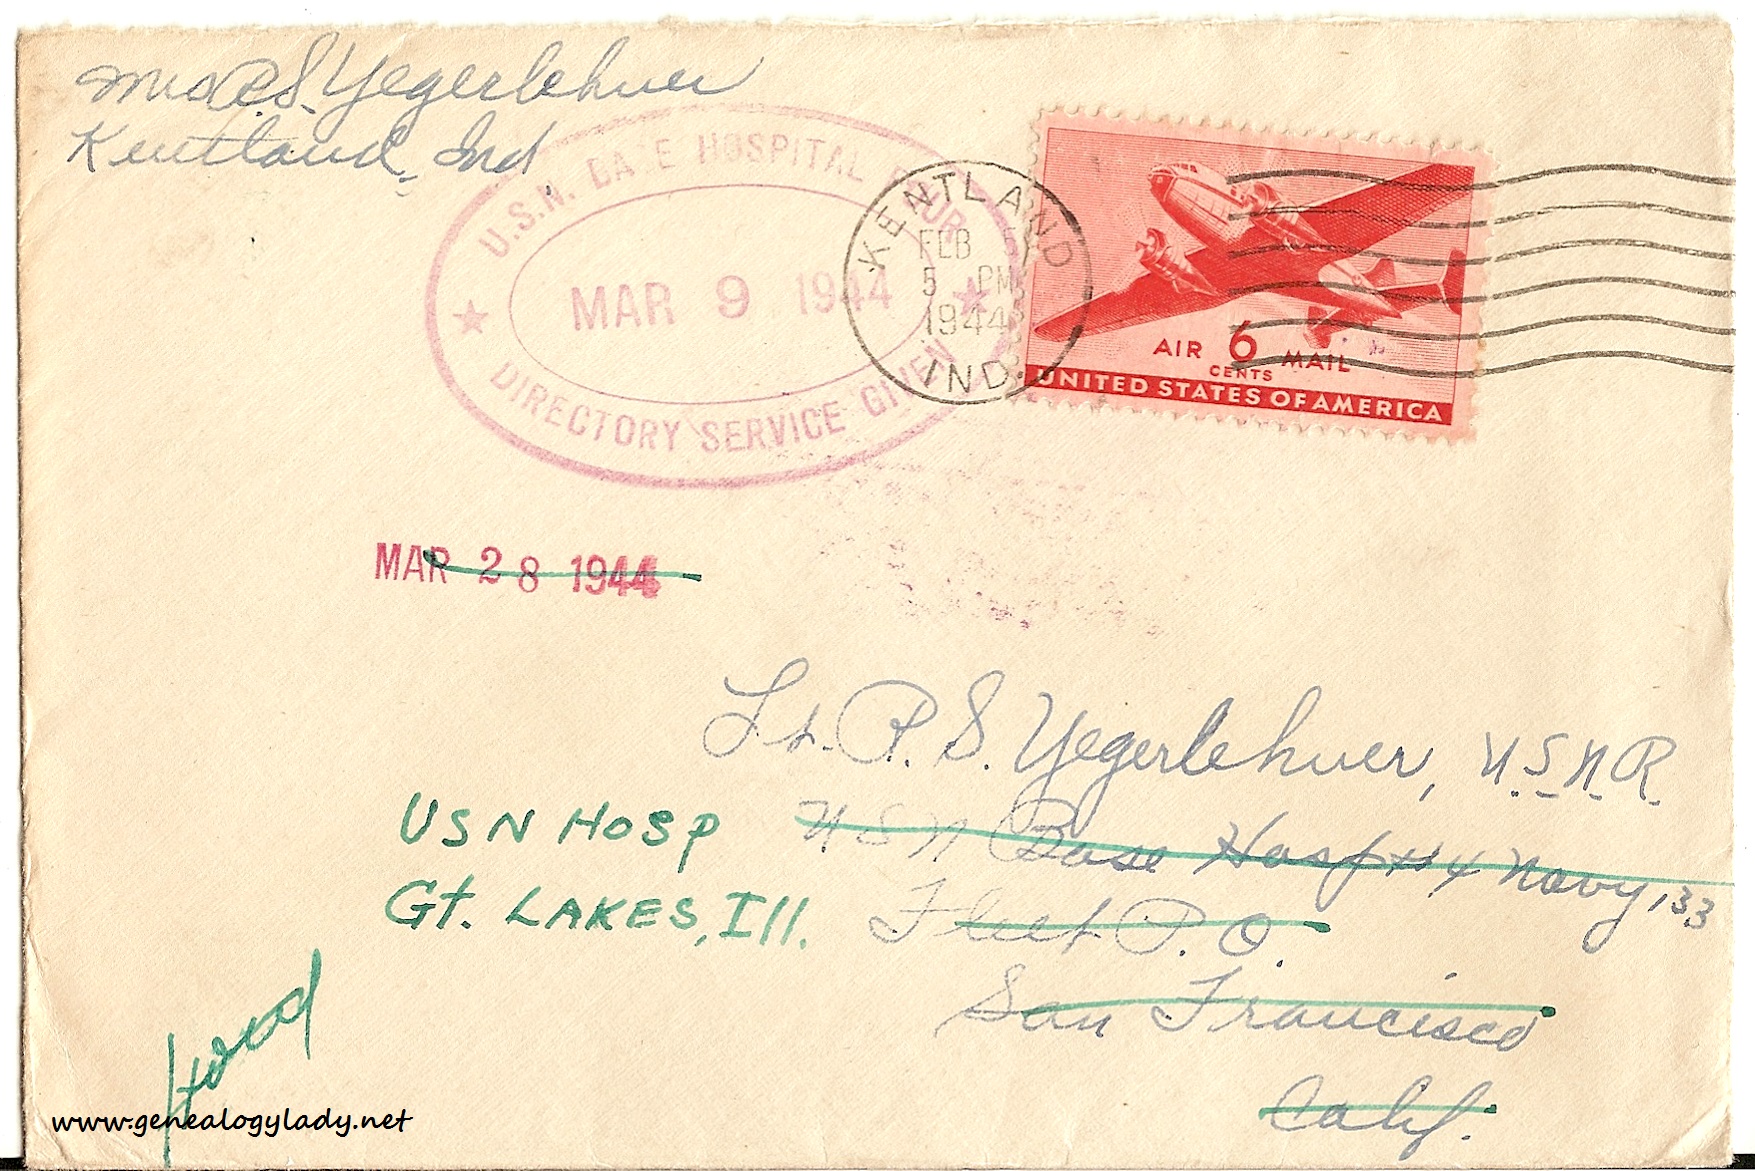 Mrs. R.S. Yegerlehner
Kentland, Ind
U.S.N. BASE HOSPITAL FOUR
MAR 9 1944
DIRECTORY SERVICE GIVEN
KENTLAND
FEB
5 PM
1944
IND.
AIR 6 MAIL
CENTS
UNITED STATES OF AMERICA
MAR 28 1944
Lt. R. S. Yegerlehner, U.S.N.R.
USN Base Hosp #4 Navy 133
Fleet P. O.
San Francisco
Calif.
USN HOSP
Gt. LAKES, Ill.
www.genealogylady.net